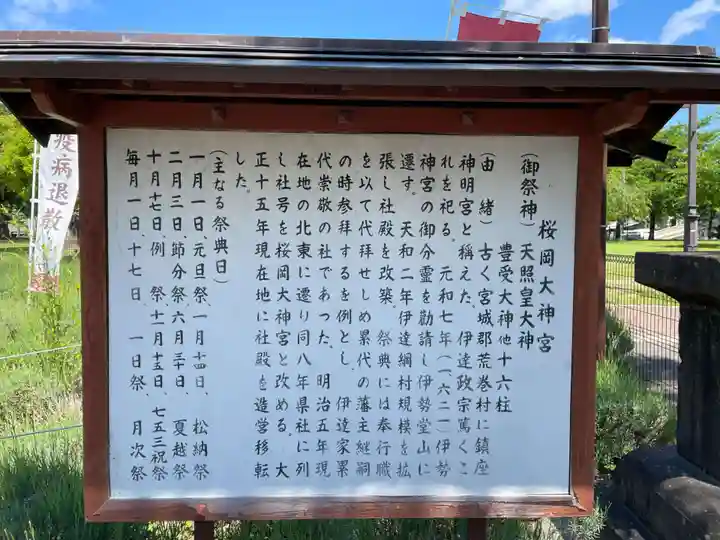 桜岡大神宮
（御祭神）天照皇大神
豊受大神他十六柱
（由　緒）　古く宮城郡荒巻村に鎮座
神明宮と稱えた、伊達政宗篤くこ
れを祀る。　元和七年（一六二一）伊勢
神宮の御分霊を勧請し伊勢堂山に
遷す。　天和二年伊達綱村規模を拡
張し社殿を改築、祭典には奉行職
を以て代拝せしめ累代の藩主継嗣
の時参拝するを例とし、伊達家累
代崇敬の社であった。明治五年現
在地の北東に遷り同八年県社に列
し社号を桜岡大神宮と改める。　大
正十五年現在地に社殿を造営移転
した。
（主なる祭典日）
一月一日、元旦祭、一月十四日、　松納祭
二月三日、節分祭、六月三十日、　夏越祭
十月十七日、例　祭、十一月十五日、七五三祝祭
毎月一日、十七日、　一日祭、　月次祭
疫病退散